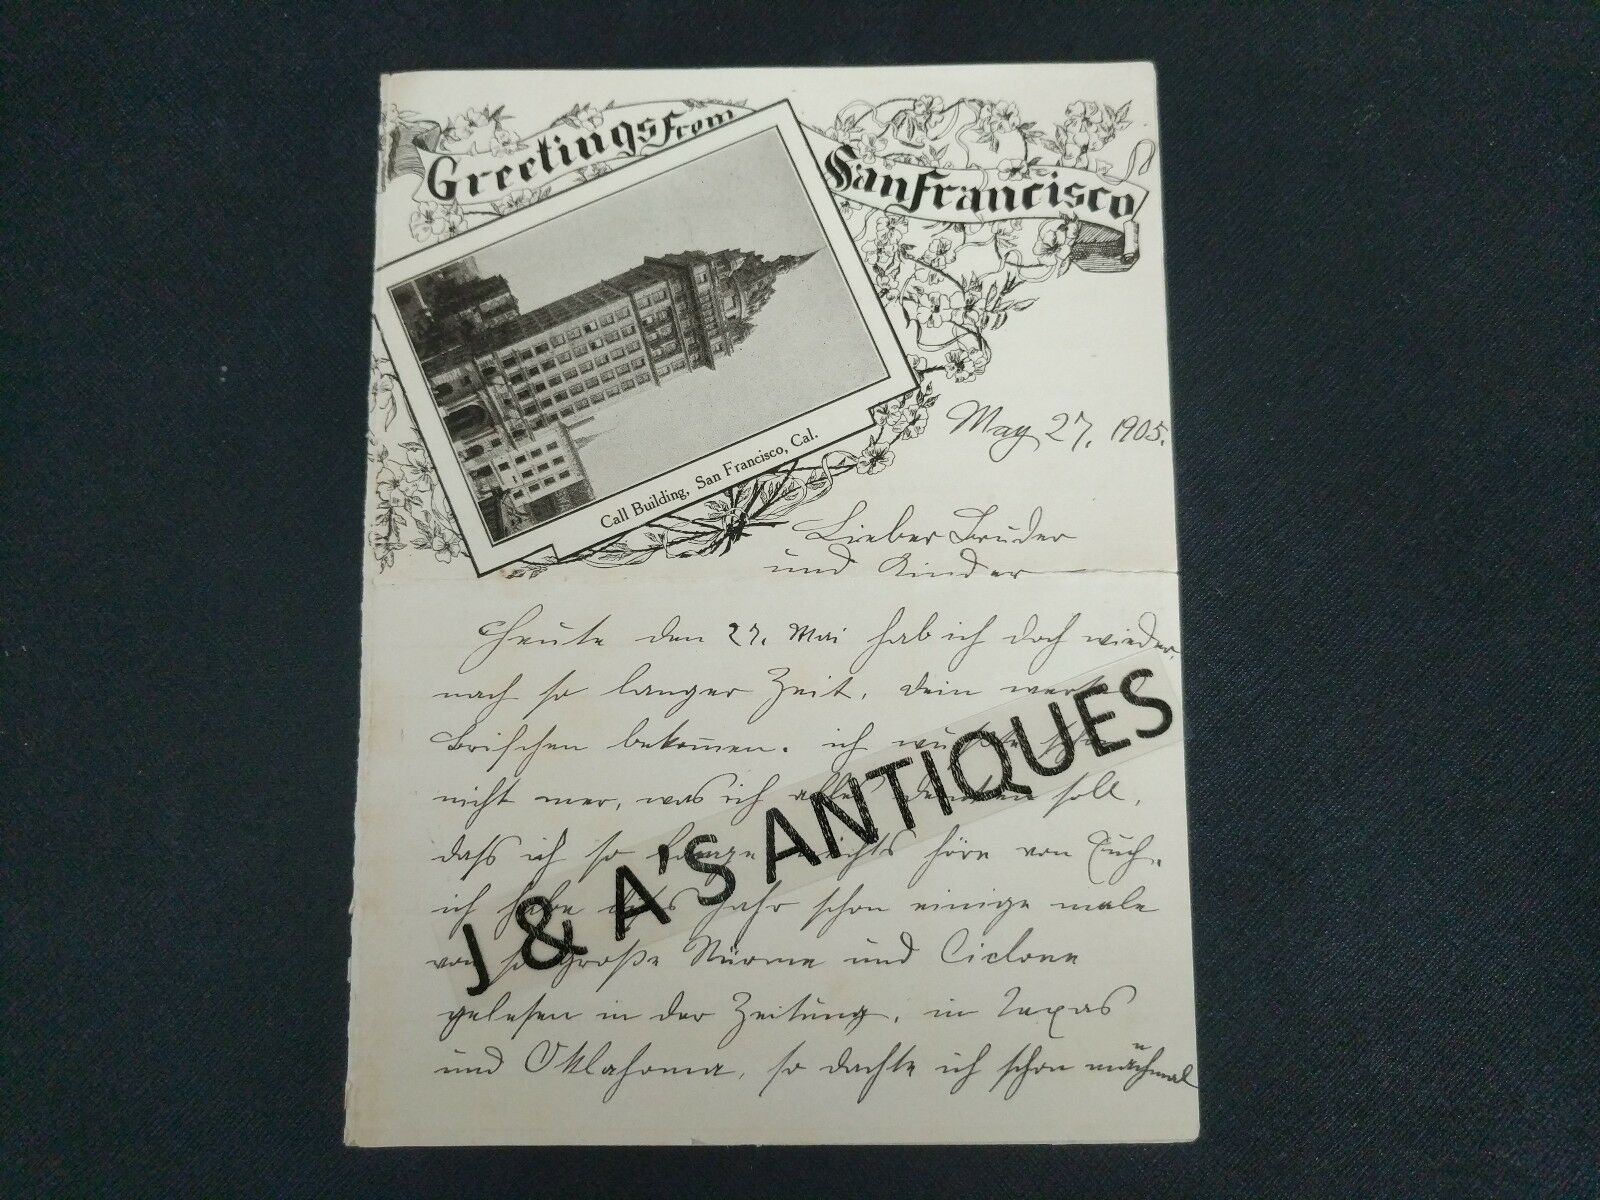 Greetings From San Francisco
Call Building, San Francisco, Cal.
May 27, 1905.
Lieber Bruder
und Kinder
Heute den 27. Mai hab ich doch wieder,
nach so langer Zeit, dein wertes
Brifchen bekom̄en. ich wußte schon
nicht mer, was ich alles denken soll,
daſs ich so lange nichts höre von Euch.
ich habe dis Jahr schon einige male
von so große Stürme und Ciclone
gelesen in der Zeitung, in Texas
und Oklahoma, so dachte ich schon manchmal
J & A'S ANTIQUES